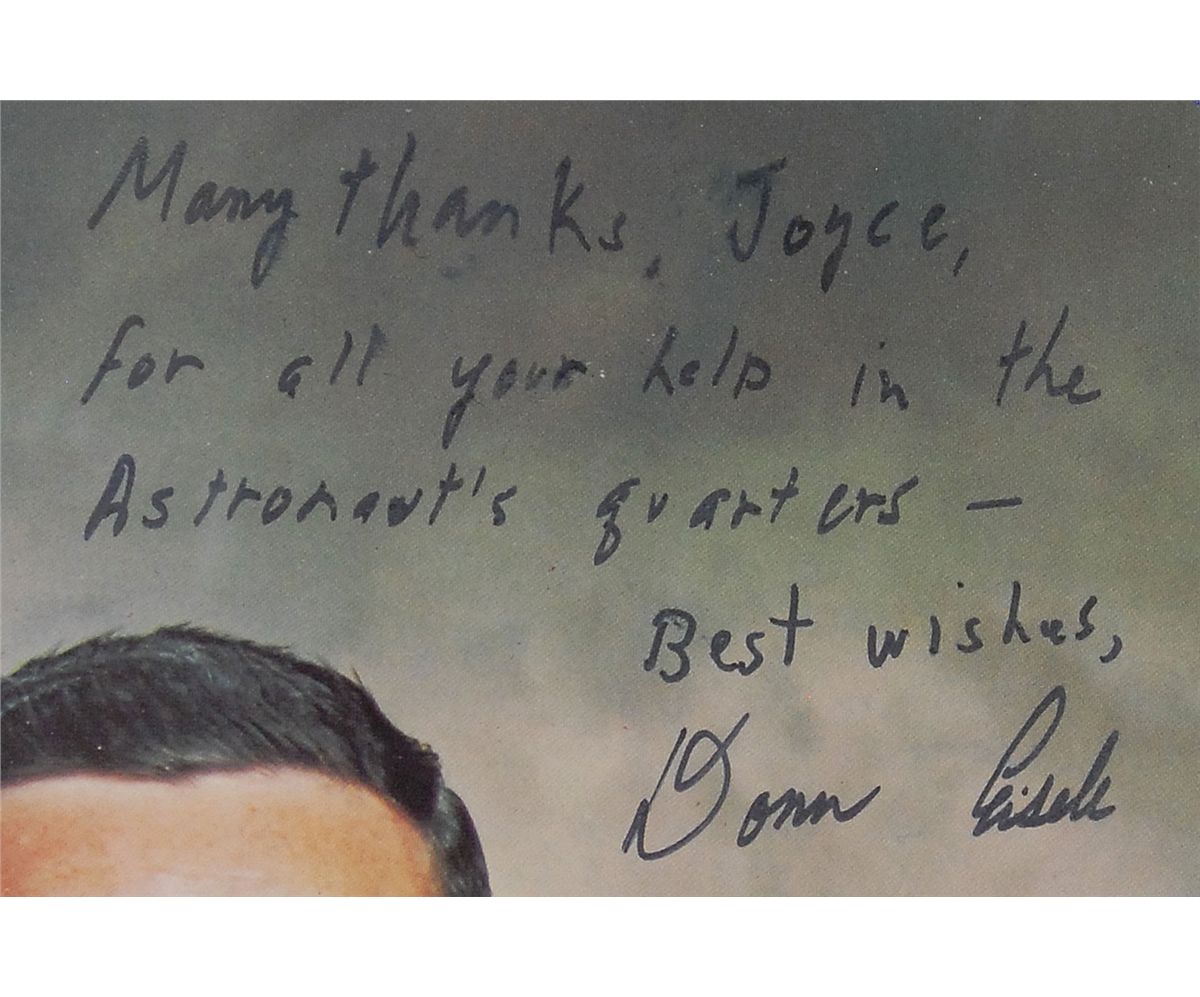 Many thanks, Joyce,
for all your help in the
Astronaut's quarters —
Best wishes,
Donn Eisele